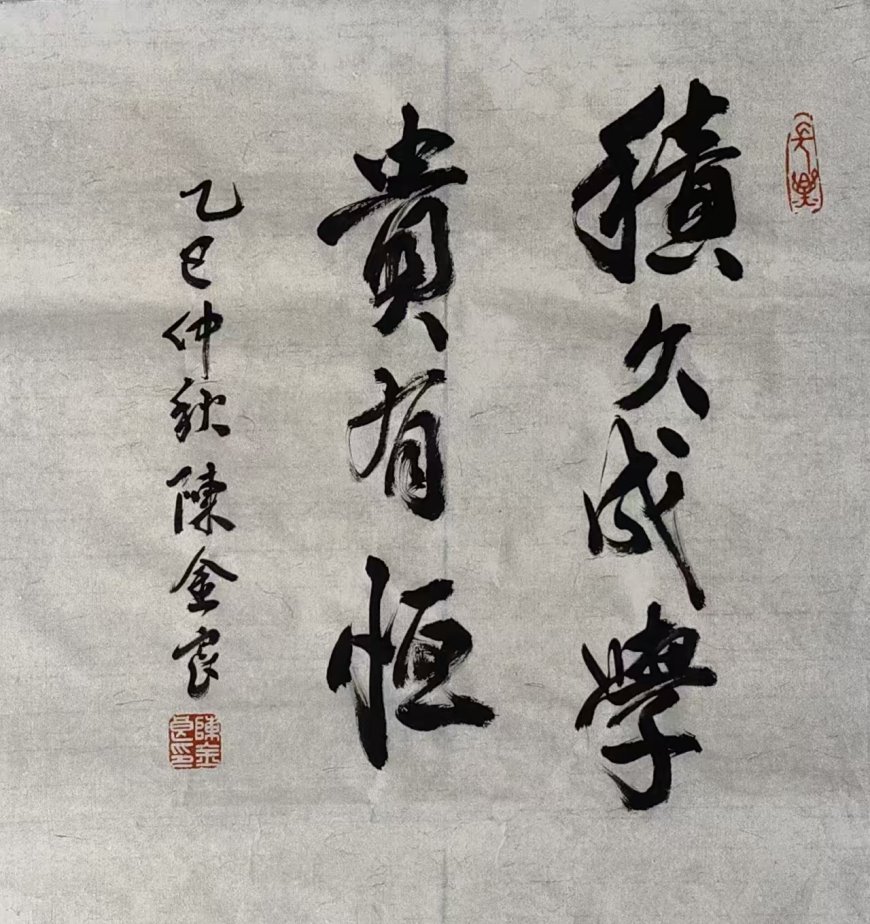 積久成學
貴有恒
乙巳仲秋陳金良
陳金良印